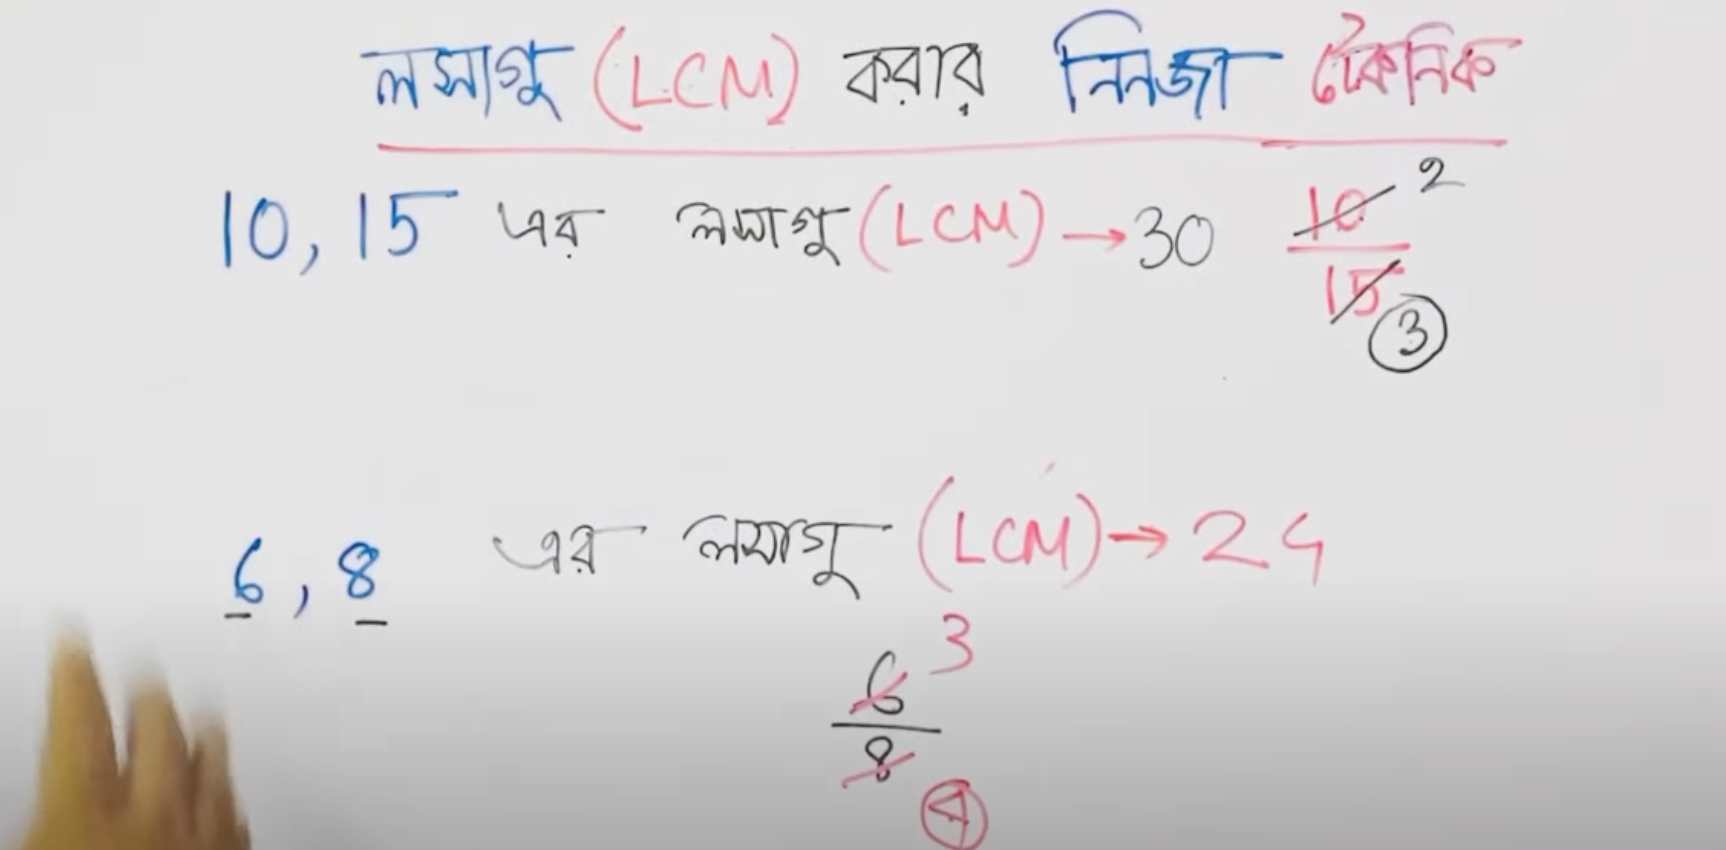 লসাগু (LCM) করার নিনজা টেকনিক
10, 15 এর লসাগু (LCM) → 30
10 2
15 3
6, 8 এর লসাগু (LCM) → 24
6 3
8 4